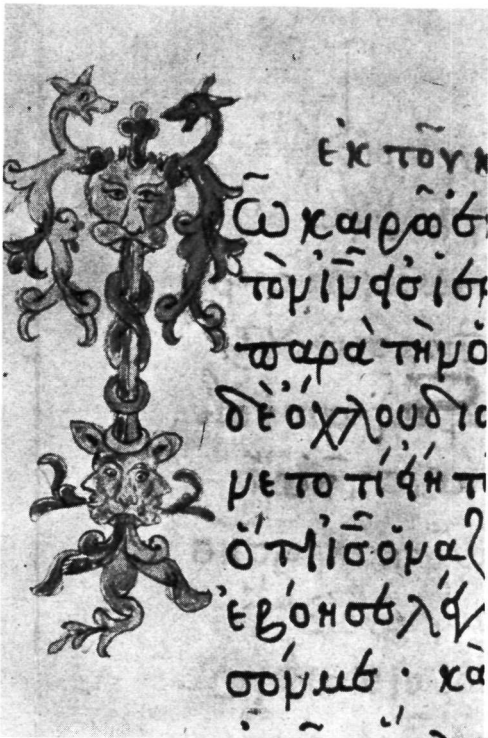 ἐκ τοῦ κ
ῶ καιρῶ ἐκ
τὸν ἰ̅ν̅ εἰς ἱε
παρὰ τὴν ὁ
δὲ ὄχλου δια
νετο τί εἴη τ
ὅτι ἰ̅ς̅ ὁ ναζ
ἐβόησε λέγ
σόν με · κα